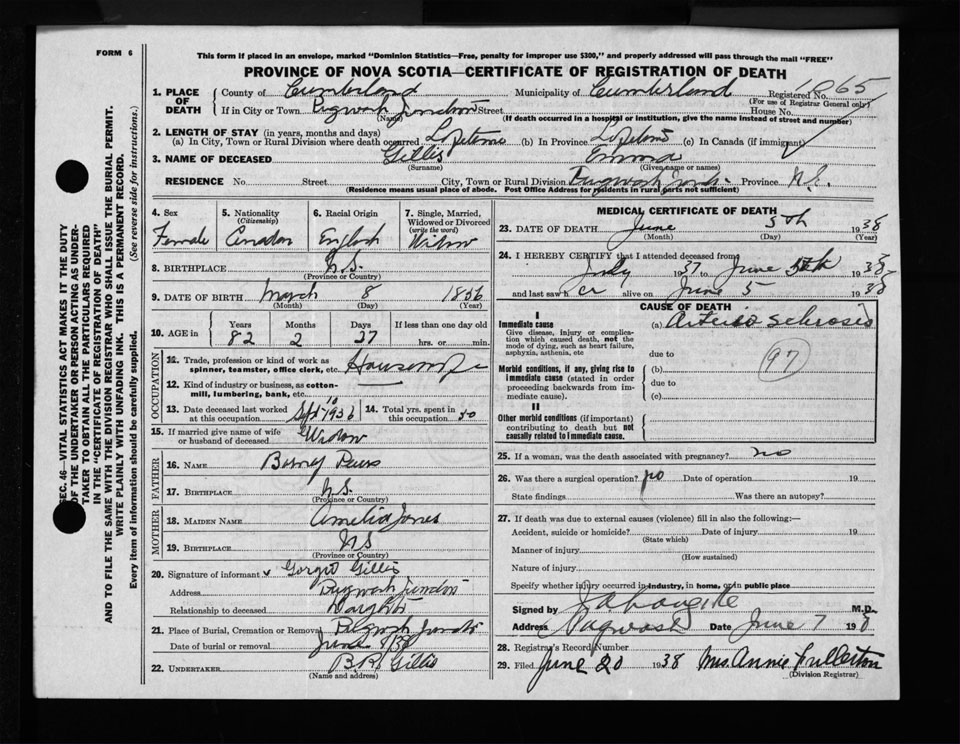 FORM 6
This form if placed in an envelope, marked "Dominion Statistics—Free, penalty for improper use $300," and properly addressed will pass through the mail "FREE"
PROVINCE OF NOVA SCOTIA—CERTIFICATE OF REGISTRATION OF DEATH
1. PLACE OF DEATH
County of Cumberland Municipality of Cumberland Registered No. 1865
(For use of Registrar General only)
If in City or Town Pugwash Junction Street House No.
(Name) (If death occurred in a hospital or institution, give the name instead of street and number)
2. LENGTH OF STAY (in years, months and days)
(a) In City, Town or Rural Division where death occurred Lifetime (b) In Province Lifetime (c) In Canada (if immigrant)
3. NAME OF DECEASED Gillis Emma
(Surname) (Given name or names)
RESIDENCE No. Street City, Town or Rural Division Pugwash Junct. Province N.S.
(Residence means usual place of abode. Post Office Address for residents in rural parts not sufficient)
4. Sex
Female
5. Nationality
(Citizenship)
Canadian
6. Racial Origin
English
7. Single, Married, Widowed or Divorced
(write the word)
Widow
8. BIRTHPLACE N.S.
(Province or Country)
9. DATE OF BIRTH March 8 1856
(Month) (Day) (Year)
10. AGE in Years Months Days If less than one day old
82 2 27 hrs. or min.
OCCUPATION
11. Trade, profession or kind of work as
spinner, teamster, office clerk, etc.
12. Kind of industry or business, as cotton-
mill, lumbering, bank, etc.
13. Date deceased last worked
at this occupation Sept 10 1936
14. Total yrs. spent in
this occupation
15. If married give name of wife
or husband of deceased Widow
FATHER
16. NAME
17. BIRTHPLACE N.S.
(Province or Country)
MOTHER
18. MAIDEN NAME Amelia Jones
19. BIRTHPLACE N.S
(Province or Country)
20. Signature of informant Gillis
Address Pugwash Junction
Relationship to deceased Daughter
21. Place of Burial, Cremation or Removal Pugwash Junct
Date of burial or removal June 8/38
22. UNDERTAKER B.R. Gillis
(Name and address)
MEDICAL CERTIFICATE OF DEATH
23. DATE OF DEATH June 5th 1938
(Month) (Day) (Year)
24. I HEREBY CERTIFY that I attended deceased from
July 1937 to June 5th 1938
and last saw her alive on June 5 1938
CAUSE OF DEATH
I
Immediate cause
Give disease, injury or complica-
tion which caused death, not the
mode of dying, such as heart failure,
asphyxia, asthenia, etc
(a) Arterio Schrosis
due to
(b)
97
Morbid conditions, if any, giving rise to
immediate cause (stated in order
proceeding backwards from im-
mediate cause).
due to
(c)
II
Other morbid conditions (if important)
contributing to death but not
causally related to immediate cause.
25. If a woman, was the death associated with pregnancy? no
26. Was there a surgical operation? no Date of operation 19
State findings Was there an autopsy?
27. If death was due to external causes (violence) fill in also the following:—
Accident, suicide or homicide? Date of injury 19
(State which)
Manner of injury
(How sustained)
Nature of injury
Specify whether injury occurred in industry, in home, or in public place
Signed by M.D.
Address Pugwash Date June 7 19
28. Registrar's Record Number
29. Filed June 20 1938 Mrs. Annie Fullerton
(Division Registrar)
SEC. 46—VITAL STATISTICS ACT MAKES IT THE DUTY
OF THE UNDERTAKER OR PERSON ACTING AS UNDER-
TAKER TO OBTAIN ALL THE PARTICULARS REQUIRED
IN THE "CERTIFICATE OF REGISTRATION OF DEATH"
AND TO FILE THE SAME WITH THE DIVISION REGISTRAR WHO SHALL ISSUE THE BURIAL PERMIT.
WRITE PLAINLY WITH UNFADING INK. THIS IS A PERMANENT RECORD.
Every item of information should be carefully supplied. (See reverse side for instructions.)